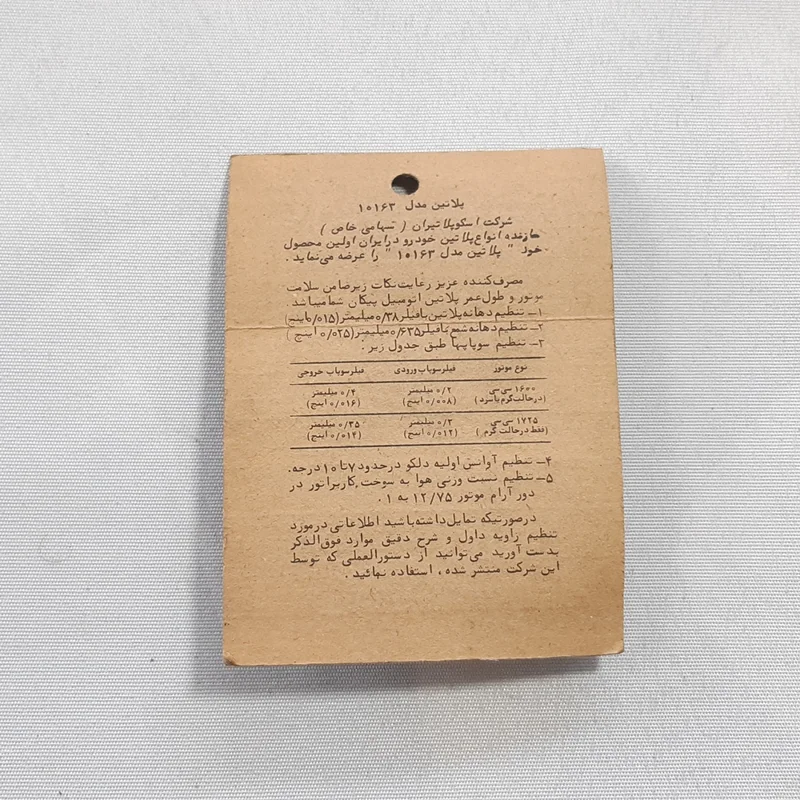 پلاتین مدل ۱۰۱۶۳
شرکت اسکوپلاتیران ( سهامی خاص )
سازنده انواع پلاتین خودرو در ایران اولین محصول
خود " پلاتین مدل ۱۰۱۶۳ " را عرضه می‌نماید .
مصرف‌کننده عزیز رعایت نکات زیر ضامن سلامت
موتور و طول عمر پلاتین اتومبیل پیکان شما میباشد
۱ــ تنظیم دهانه پلاتین با فیلر ۰/۳۸ میلیمتر (۰/۰۱۵ اینچ)
۲ــ تنظیم دهانه شمع با فیلر ۰/۶۳۵ میلیمتر (۰/۰۲۵ اینچ )
۳ــ تنظیم سوپاپها طبق جدول زیر :
نوع موتور فیلر سوپاپ ورودی فیلر سوپاپ خروجی
۱۶۰۰ سی سی ۰/۲ میلیمتر ۰/۴ میلیمتر
(در حالت گرم یا سرد ) (۰/۰۰۸ اینچ) (۰/۰۱۶ اینچ)
۱۷۲۵ سی سی ۰/۳ میلیمتر ۰/۳۵ میلیمتر
(فقط در حالت گرم ) (۰/۰۱۲ اینچ) (۰/۰۱۴ اینچ)
۴ــ تنظیم آوانس اولیه دلکو در حدود ۷ تا ۱۰ درجه.
۵ــ تنظیم نسبت وزنی هوا به سوخت، کاربراتور در
دور آرام موتور ۱۲/۷۵ به ۱ .
در صورتیکه تمایل داشته باشید اطلاعاتی در مورد
تنظیم زاویه داول و شرح دقیق موارد فوق‌الذکر
بدست آورید می‌توانید از دستورالعملی که توسط
این شرکت منتشر شده ، استفاده نمائید .